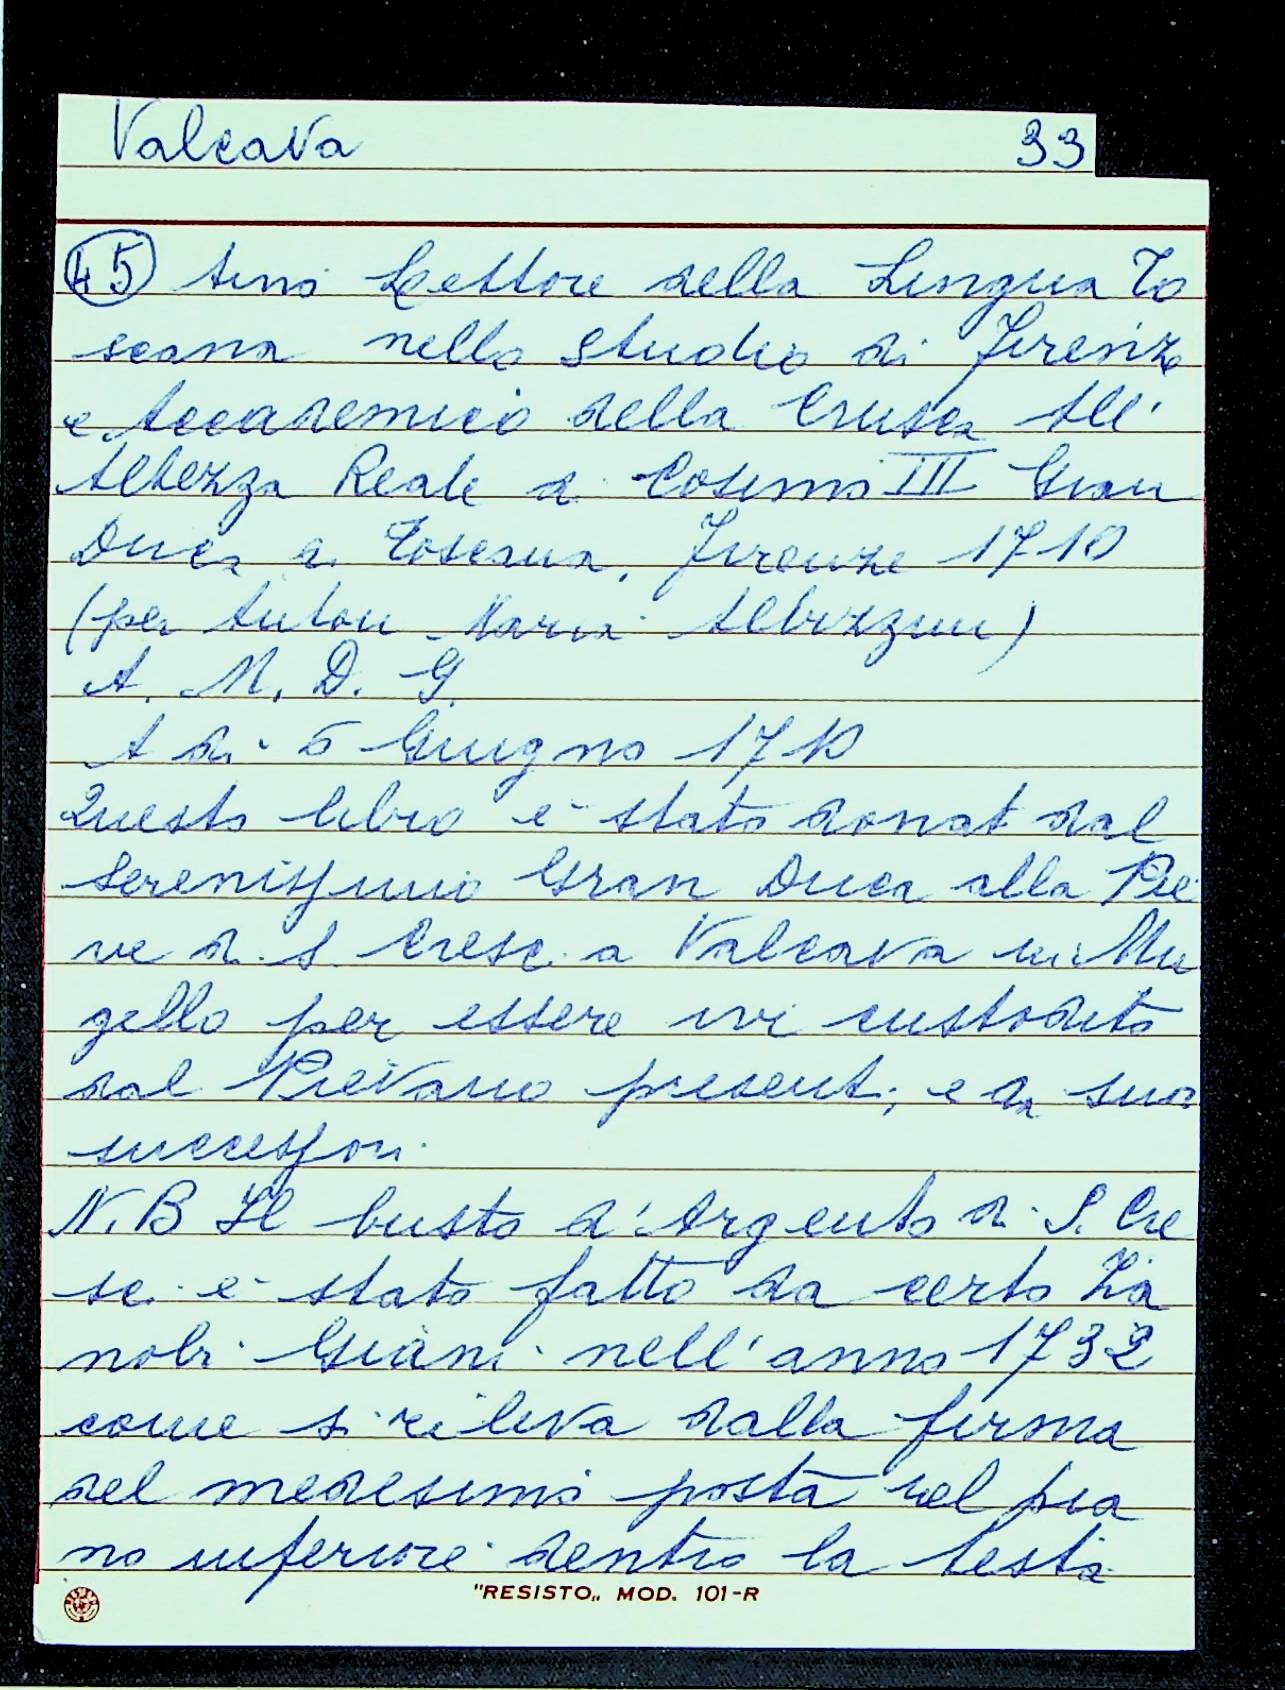 Valcava 33
45 tino Lettore della Lingua To
scana nello Studio di Firenze
e Accademico della Crusca All'
Altezza Reale di Cosimo III Gran
Duca di Toscana, Firenze 1710
(per Anton Maria Albizzini)
A. M. D. G.
A di 5 Giugno 1710
Questo libro è stato donat dal
Serenissimo Gran Duca alla Pie
ve di S. Cresc. a Valcava in Mu
gello per essere ivi custodito
dal Pievano present, e da suoi
successori.
N.B Il busto d'Argento di S. Cre
sc. è stato fatto da certo Za
nobi Giani nell'anno 1732
come si rileva dalla firma
del medesimo posta nel pia
no inferiore dentro la testa
"RESISTO„ MOD. 101-R